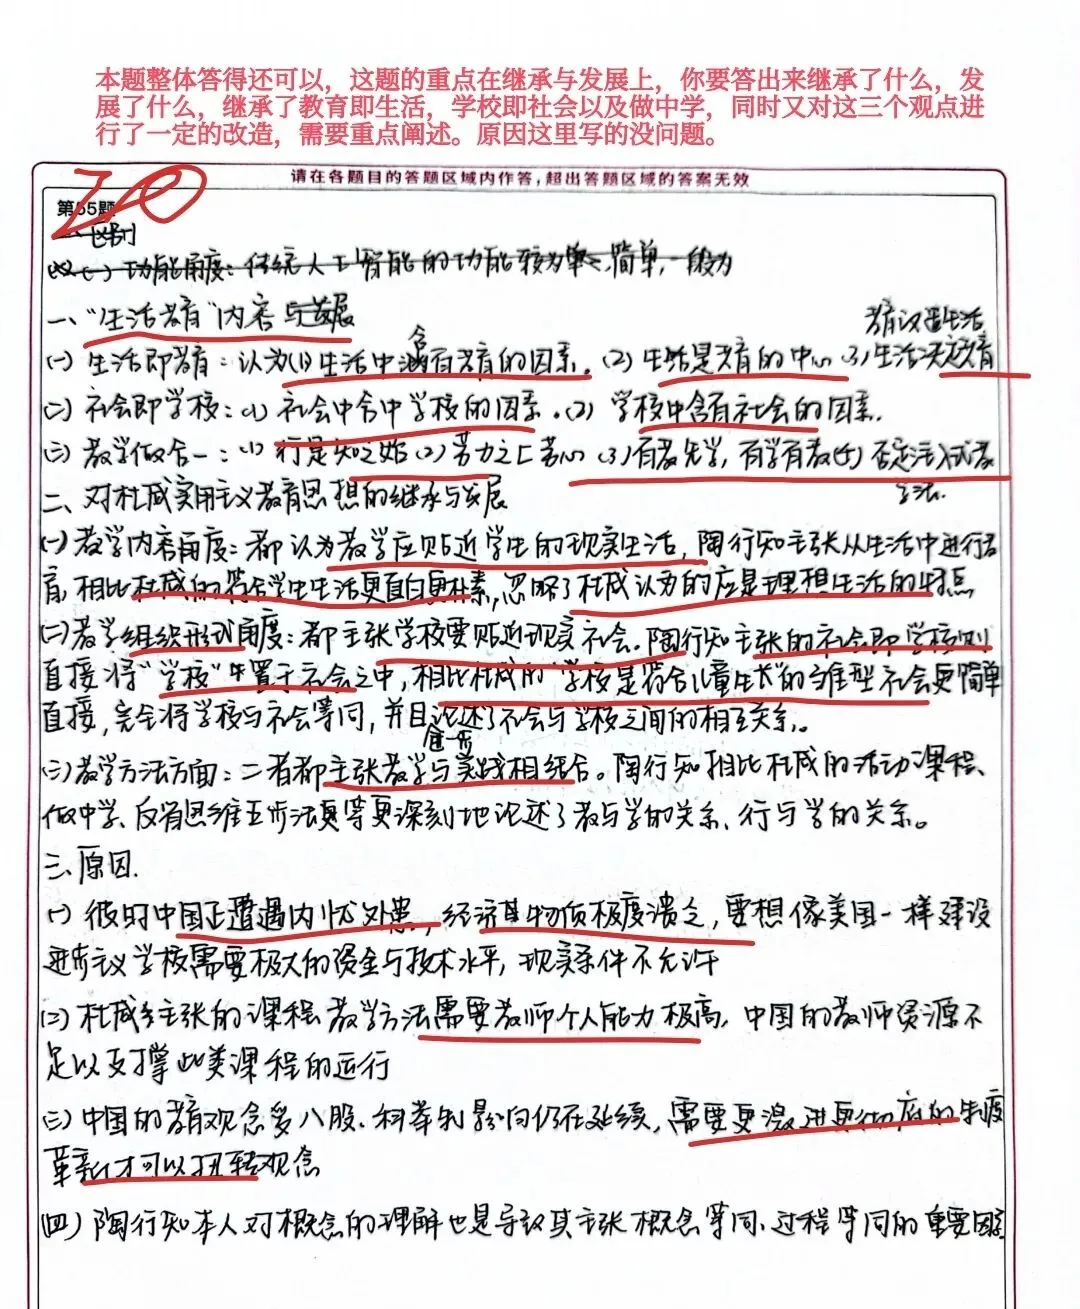 本题整体答得还可以，这题的重点在继承与发展上，你要答出来继承了什么，发
展了什么，继承了教育即生活，学校即社会以及做中学，同时又对这三个观点进
行了一定的改造，需要重点阐述。原因这里写的没问题。
请在各题目的答题区域内作答，超出答题区域的答案无效
20
第55题
一、区别
(一)功能角度：传统人工智能的功能较为单一、简单，一般为
一、"生活教育"内容与发展
教育改造生活
(一)生活即教育：认为(1)生活中涵有教育的因素。(2)生活是教育的中心(3)生活决定教育
含
(二)社会即学校：(1)社会中含中学校的因素。(2)学校中含有社会的因素.
(三)教学做合一：(1)行是知之始(2)劳力之上劳心(3)有教先学，有学有教(4)否定注入式教
学法.
二、对杜威实用主义教育思想的继承与发展
(一)教学内容角度：都认为教学应贴近学生的现实生活，陶行知主张从生活中进行教
育，相比杜威的符合学生生活更直白更朴素，忽略了杜威认为的应是理想生活的特点
(二)教学组织形式角度：都主张学校要贴近现实社会。陶行知主张的社会即学校则
直接将"学校"放置于社会之中，相比杜威的"学校是符合儿童生长"的雏型社会更简单
直接，完全将学校与社会等同，并且论述了社会与学校之间的相互关系。
进一步
(三)教学方法方面：二者都主张教学与实践相结合。陶行知相比杜威的活动课程、
做中学、反省思维五步法更等更深刻地论述了教与学的关系、行与学的关系。
三、原因.
(一)彼时中国正遭遇内忧外患，经济其物质极度溃乏，要想像美国一样建设
进步主义学校需要极大的资金与技术水平，现实条件不允许
(二)杜威主张的课程教学方法需要教师个人能力极高，中国的教师资源不
足以支撑此类课程的运行
(三)中国的教育观念多八股、科举制影响仍在延续，需要更激进更彻底的制度
革新才可以扭转观念
(四)陶行知本人对概念的理解也是导致其主张概念等同、过程等同的重要因素